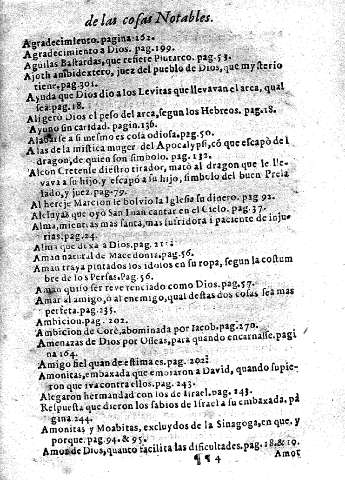 de las cosas Notables.
Agradecimiento. pagina 162.
Agradecimiento a Dios. pag. 199.
Aguilas Bastardas, que refiere Plutarco. pag. 53.
Ajoth ambidextero, juez del pueblo de Dios, que mysterio
tiene, pag. 301.
Ayuda que Dios dio a los Levitas que llevavan el arca, qual
sea. pag. 18.
Aligerò Dios el peso del arca, segun los Hebreos. pag. 18.
Ayuno sin caridad. pagin. 136.
Alabarse a si mesmo es cosa odiosa. pag. 50.
Alas de la mistica muger del Apocalypsi, cō que escapò del
dragon, de quien son simbolo. pag. 132.
Alcon Cretense diestro tirador, matò al dragon que le lle-
vava a su hijo, y escapò a su hijo, simbolo del buen Prela
lado, y juez. pag. 79.
Al hereje Marcion le bolvio la Iglesia su dinero. pag. 92.
Aleluyas que oyò San Iuan cantar en el Cielo. pag. 37.
Alma, mientras mas santa, mas sufridora i paciente de inju-
rias. pag. 24.
Alma que dexa a Dios. pag.
Aman natural de Macedonia. pag. 56.
Aman traya pintados los idolos en su ropa, segun la costum
bre de los Persas. Pag. 56.
Aman quiso ser reverenciado como Dios. pag. 57.
Amar al amigo, o al enemigo, qual destas dos cosas sea mas
perfeta. pag. 235.
Ambicion. pag. 202.
Ambicion de Corè, abominada por Iacob. pag. 270.
Amenazas de Dios por Osseas, para quando encarnasse. pagi
na 164.
Amigo fiel quan de estima es. pag. 202.
Amonitas, embaxada que embiaron a David, quando supie-
ron que iva contra ellos. pag. 243.
Alegaron hermandad con los de Israel. pag. 243.
Respuesta que dieron los sabios de Israel a su embaxada, pá
gina 244.
Amonitas y Moabitas, excluydos de la Sinagoga, en que, y
porque. pag. 94. & 95.
Amor de Dios, quanto facilita las dificultades. pag. 18. & 19.
¶ ¶ 4 Amor